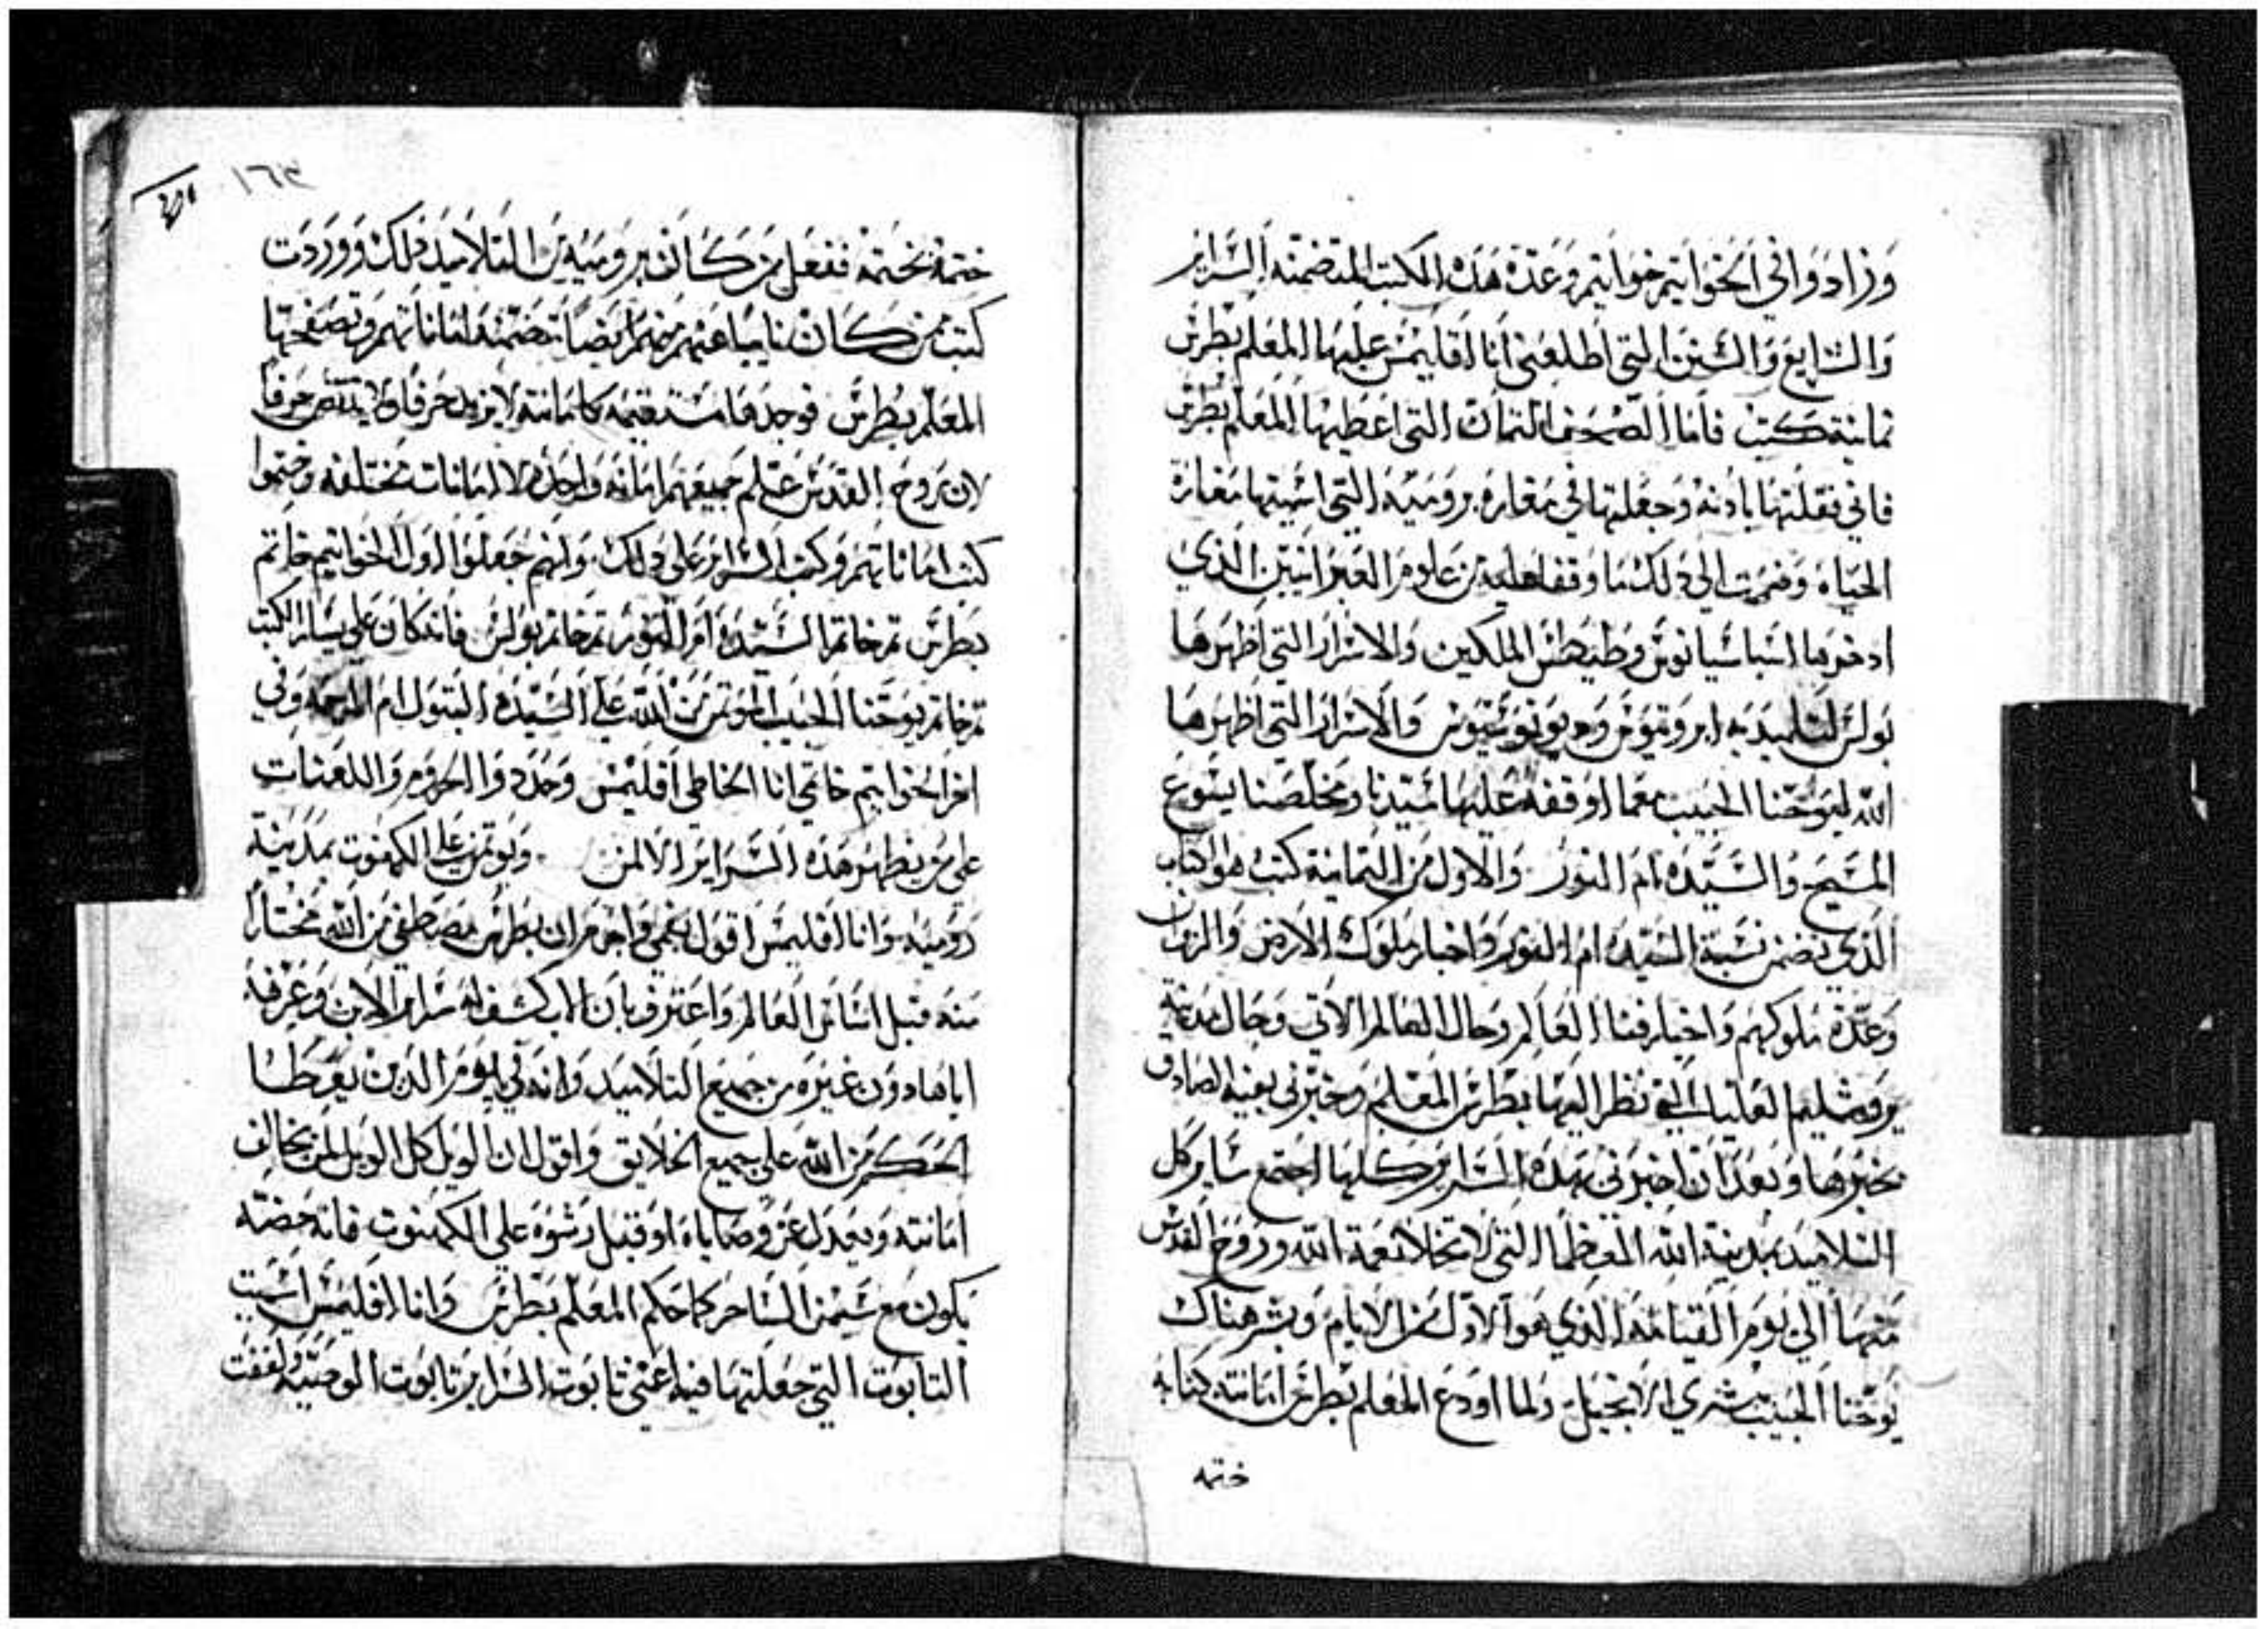 وزادوا في الخواتيم خواتيم وعدة هذه الكتب المتضمنة السراير
والشرايع والسنن التي اطلعني انا اقليمس عليها المعلم بطرس
ثمانية كتب فاما الصحف الثمان التي اعطيها المعلم بطرس
فاني نقلتها باذنه وجعلتها في مغارة برومية التي اسميها مغارة
الحياه وضممت الى ذلك ما وقفنا عليه من علوم العبرانيين الذي
ادخرها اسباسيانوس وطيطس الملكين والاسرار التي اظهرها
بولس لتلميذيه ابروتيوس وديونوسيوس والاسرار التي اظهرها
الله ليوحنا الحبيب مما اوقفه عليها سيدنا ومخلصنا يسوع
المسيح والسيده ام النور والاول من الثمانية كتب هو كتاب
الذي تضمن نسبة السيده ام النور واخبار ملوك الارض والزمان
وعدة ملوكهم واخبار فنا العالم وحال العالم الاتي وحال مدينة
يروشليم العليا التي نظر اليها بطرس المعلم وخبرني بفيه الصادق
بخبرها وبعد ان اخبرني بهذه السراير كلها اجتمع ساير كل
التلاميد بمدينة الله العظما التي لا تخلا نعمة الله وروح القدس
منها الى يوم القيامه الذي هو الاول من الايام وبشر هناك
يوحنا الحبيب بشرى الانجيل ولما اودع المعلم بطرس امانته كتابه
ختمه
١٦٣
ختمه بختمه ففعل من كان برومية من التلاميد ذلك ووردت
كتب ممن كان نايبا عنهم منهم ايضا تتضمنه اماناتهم وتصفحها
المعلم بطرس فوجدها مستقيمه كامانته لا يزيد حرفا ولا ينقص حرفا
لان روح القدس علم جميعهم امانه واحده لا امانات مختلفه وختموا
كتب اماناتهم وكتب السراير على ذلك وانهم جعلوا اول الخواتيم خاتم
بطرس ثم خاتم السيده ام النور ثم خاتم بولس فانه كان على يسار الكتب
ثم خاتم يوحنا الحبيب الموتمن من الله على السيده البتول ام الرحمه وفي
اخر الخواتيم خاتمي انا الخاطي اقليمس وحددوا الحروم واللعنات
على من يظهر هذه السراير الا لمن يوتمن على الكهنوت بمدينة
رومية وانا اقليمس اقول بفمي واجزم ان بطرس مصطفى من الله مختارا
منه قبل اساس العالم واعترف بان الاب كشف له سراير الابن وعرفه
اياها دون غيره من جميع التلاميد وانه في يوم الدين يعطا
الحكم من الله على جميع الخلايق واقول ان الويل كل الويل لمن يخالف
امانته ويعدل عن وصاياه او قبل رشوة على الكهنوت فانه حصته
يكون مع سيمن الساحر كما حكم المعلم بطرس وانا اقليمس اسميت
التابوت التي جعلتها فيه اعني تابوت السراير تابوت الوصيه ولففت